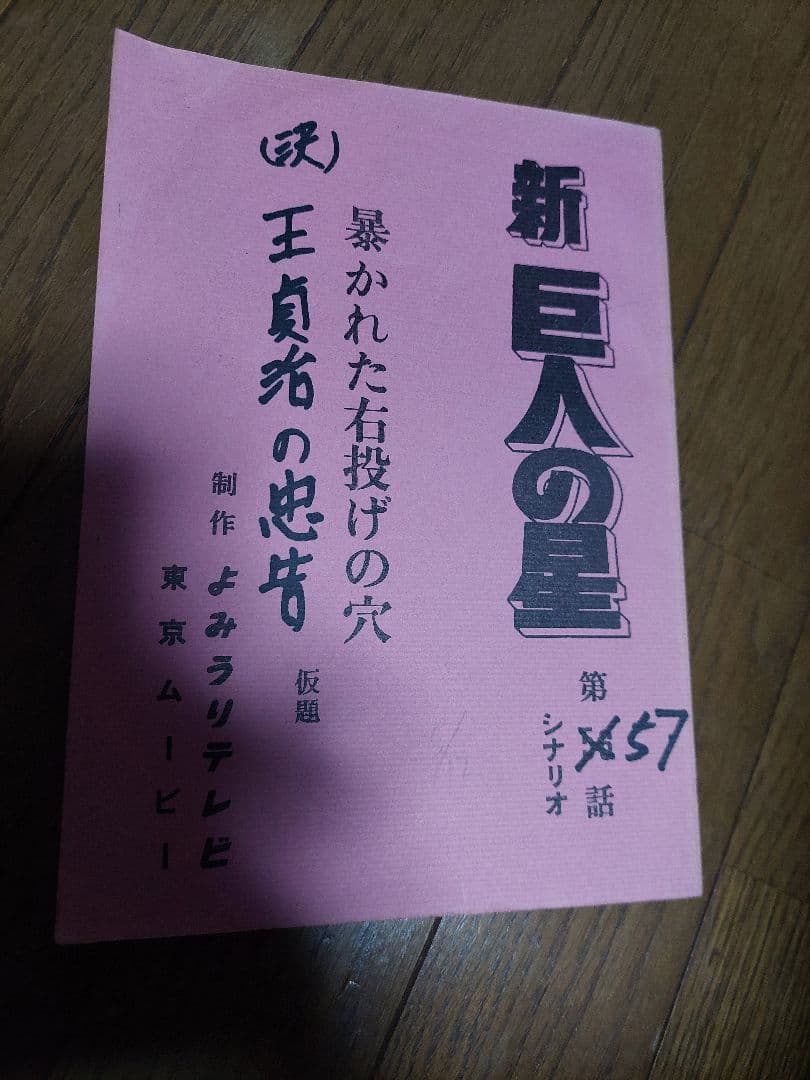 新巨人の星
第57話
シナリオ
暴かれた右投げの穴
(決)
王貞治の忠告
仮題
制作 よみうりテレビ
東京ムービー